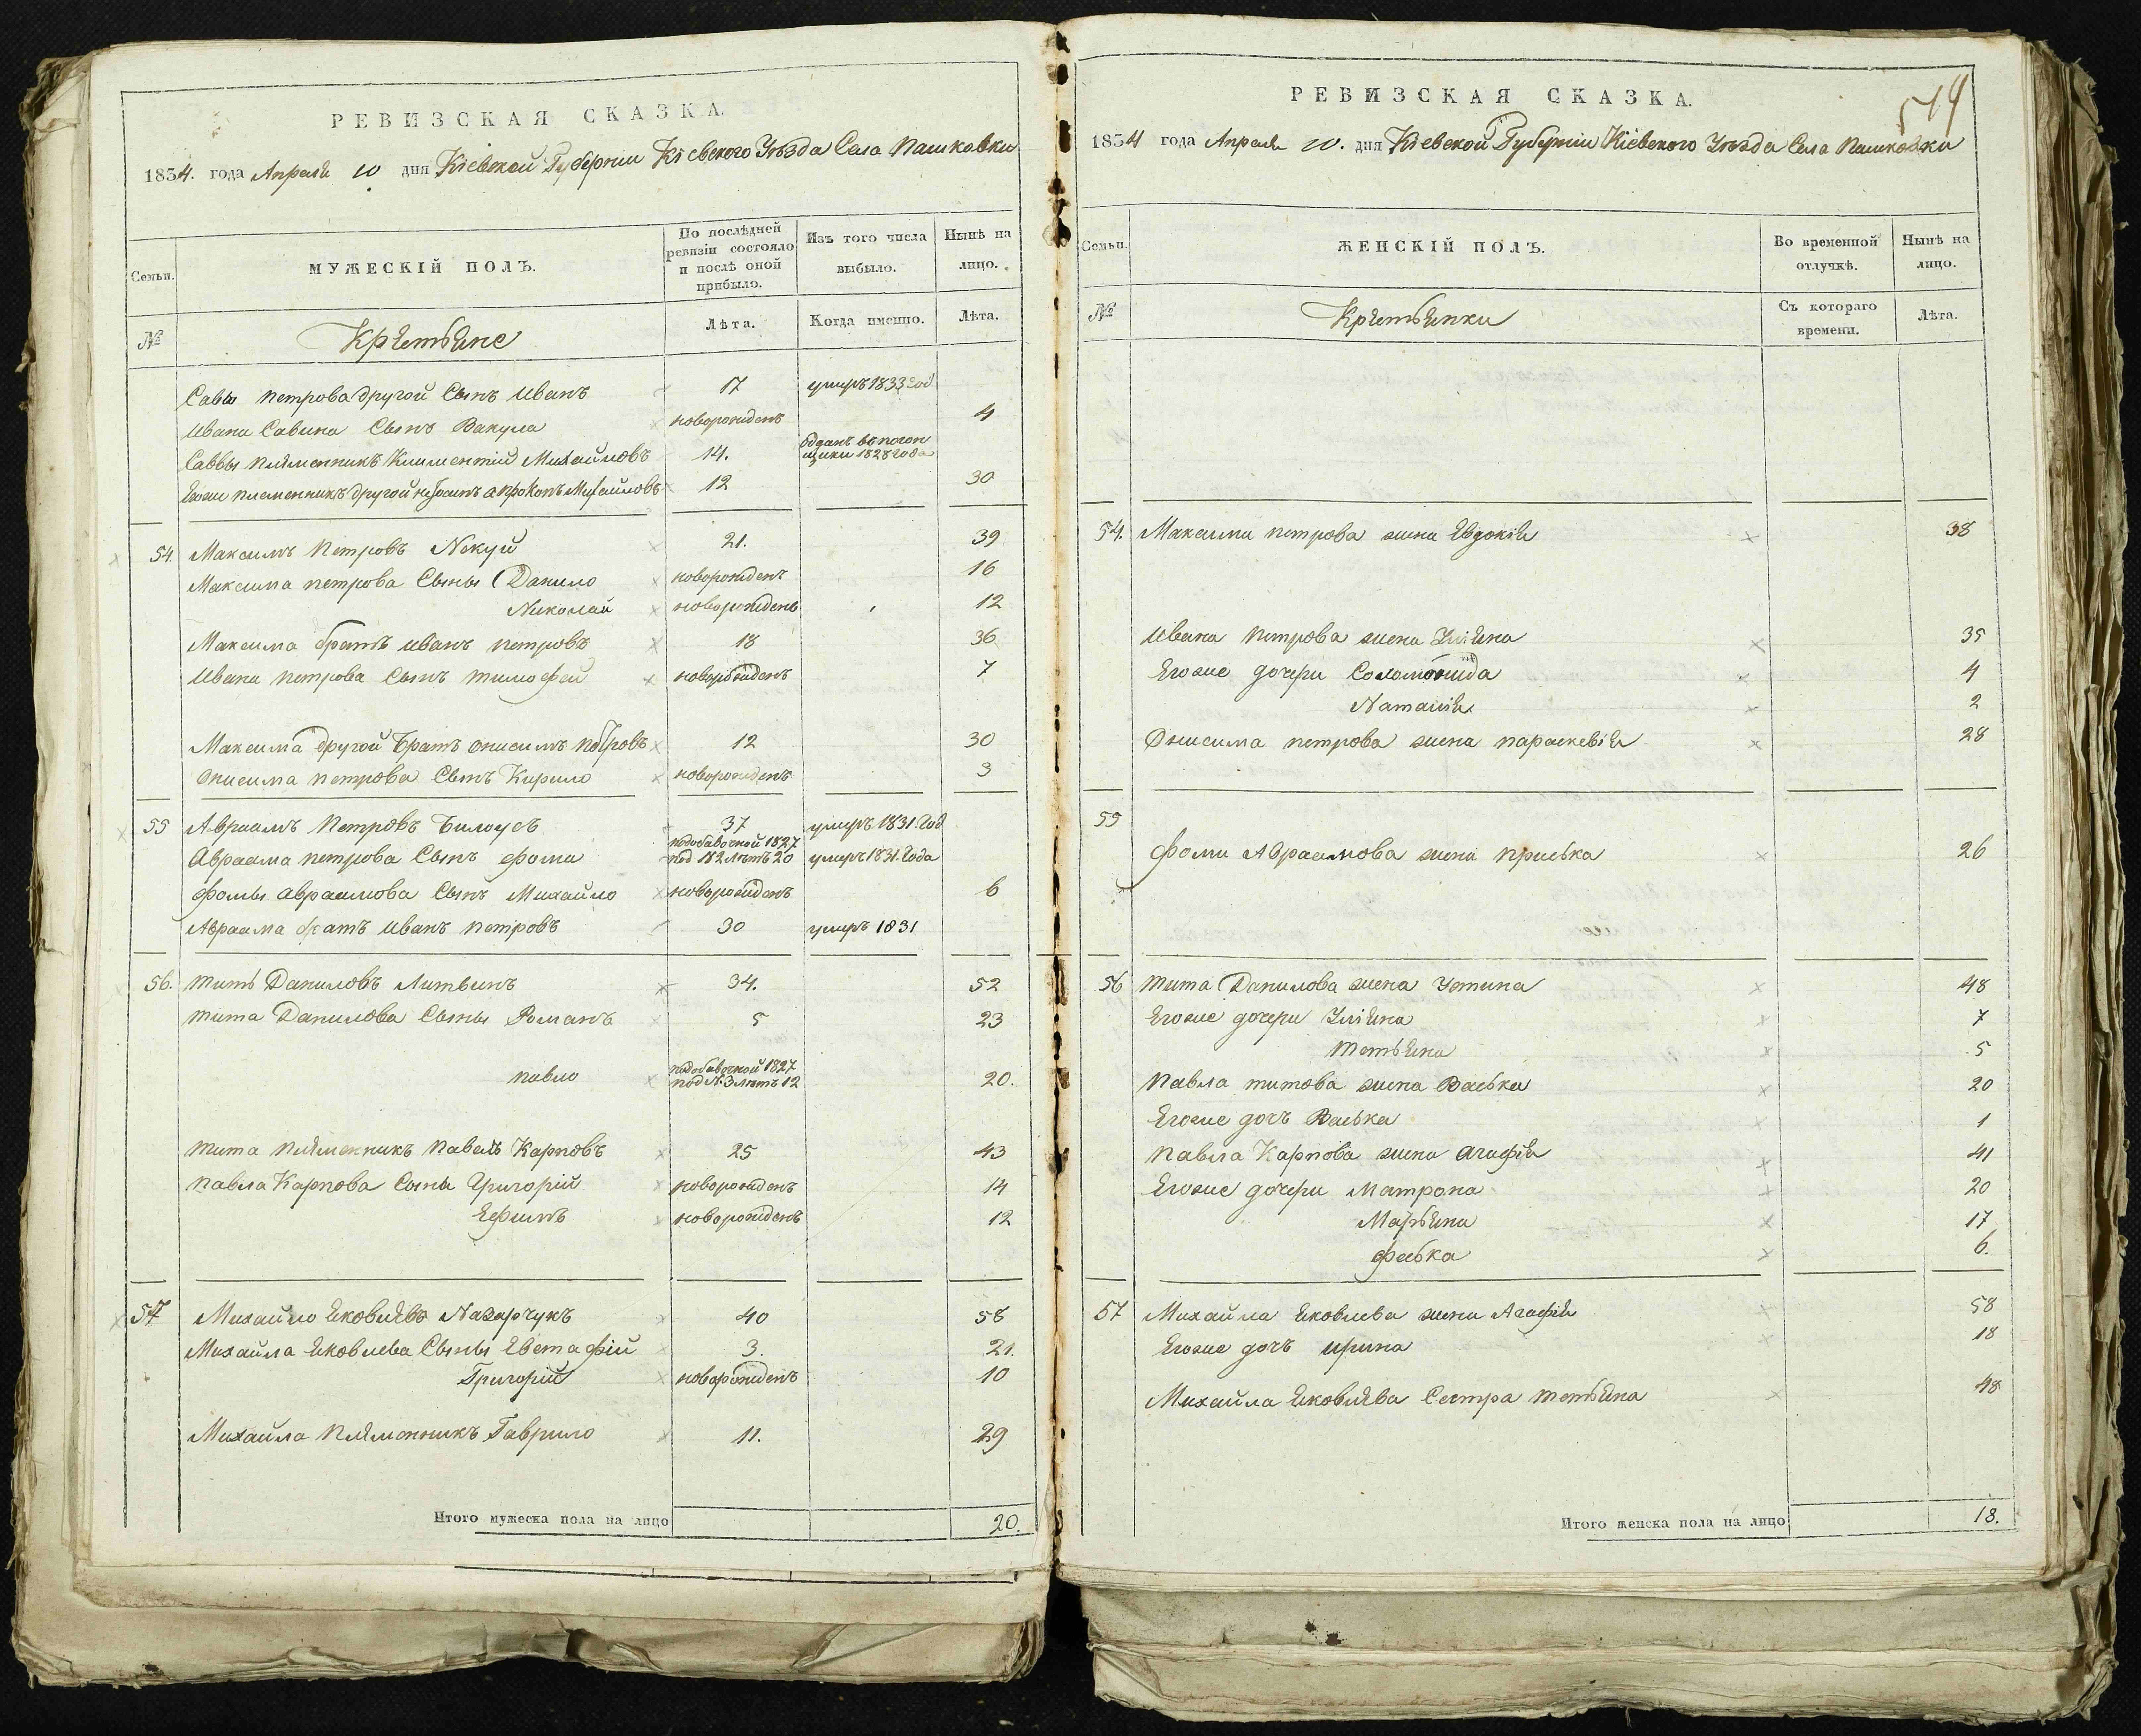 РЕВИЗСКАЯ СКАЗКА.
1834. года Апреля 10 дня Кіевской Губерніи Кіевского Уѣзда Села Пашковки
Семьи.
МУЖЕСКІЙ ПОЛЪ.
По послѣдней ревизіи состояло и послѣ оной прибыло.
Изъ того числа выбыло.
Нынѣ на лицо.
№
Крѣстьяне
Лѣта.
Когда именно.
Лѣта.
Савы петрова другой Сынъ иванъ 17 умеръ 1833 год
ивана Савина Сынъ Вакула новорожденъ 4
Саввы плѣменникъ Климентій Михайловъ 14. отданъ въ погонщики 1828 года
племенникъ другой Михайловъ 12 30
54. Максимъ Петровъ Некуй 21. 39
Максима петрова Сыны Данило новорожденъ 16
Николай новорожденъ 12
Максима братъ иванъ петровъ 18 36
ивана петрова Сынъ тимофей новорожденъ 7
Максима другой братъ онисимъ петровъ 12 30
онисима петрова Сынъ Кирило новорожденъ 3
55 Авраамъ Петровъ Билоусъ 37 умеръ 1831. год
Авраама петрова Сынъ фома подобавочной 1827 под 182 лѣтъ 20 умеръ 1831. года
фомы авраамова Сынъ Михайло новорожденъ 6
Авраама братъ иванъ петровъ 30 умеръ 1831
56. титъ Даниловъ Литвинъ 34. 52
тита Данилова Сыны Романъ 5 23
павло подобавочной 1827 под №3 лѣтъ 12 20.
тита плѣменникъ павелъ Карповъ 25 43
павла Карпова Сыны Григорій новорожденъ 14
Ефимъ новорожденъ 12
57 Михайло Яковлѣвъ Назарчукъ 40 58
Михайла Яковлева Сыны Евстафій 3. 21.
Григорій новорожденъ 10
Михайла плѣменникъ Гаврило 11. 29
Итого мужеска пола на лицо 20.
514
РЕВИЗСКАЯ СКАЗКА.
1834 года Апреля 10. дня Кіевской Губерніи Кіевского Уѣзда Села Пашковки
Семьи.
ЖЕНСКІЙ ПОЛЪ.
Во временной отлучкѣ.
Нынѣ на лицо.
№
Крѣстьянки
Съ котораго времени.
Лѣта.
54. Максима петрова жена Евдокія 38
ивана петрова жена Уліяна 35
Егоже дочери Соломонида 4
Наталія 2
Онисима петрова жена параскевія 28
55
фомы Авраамова женаприська 26
56 тита Данилова жена Устина 48
Егоже дочери Уліяна 7
тетьяна 5
павла титова жена Васька 20
Егоже дочъ Васька 1
павла Карпова жена агафія 41
Егоже дочери Матрона 20
Марьяна 17
феська 6.
57 Михайла Яковлева жена Агафія 58
Егоже дочъ ирина 18
Михайла Яковлѣва Сестра тетьяна 48
Итого женска пола на лицо 18.